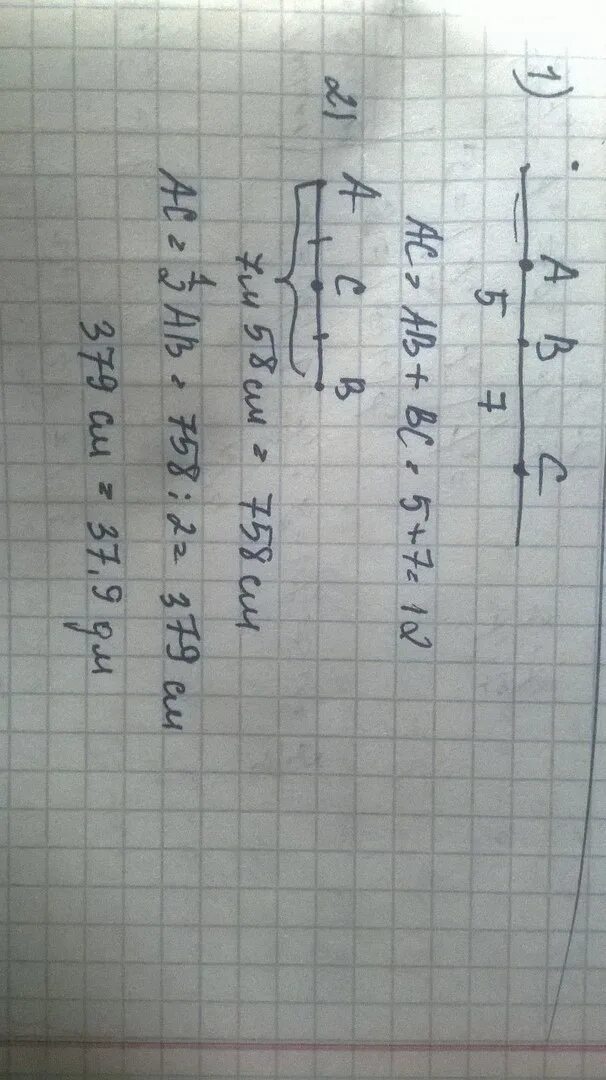 1)
A B C
5 7
AC = AB + BC = 5+7=12
2)
A C B
7м 58 см = 758 см
AC = 1/2 AB = 758 : 2 = 379 см
379 см = 37,9 дм